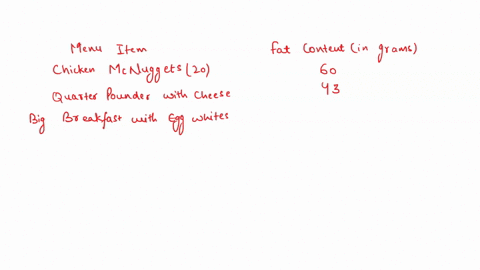 Menu Item Fat Content (in grams)
Chicken McNuggets (20) 60
Quarter Pounder with Cheese 43
Big Breakfast with Egg whites